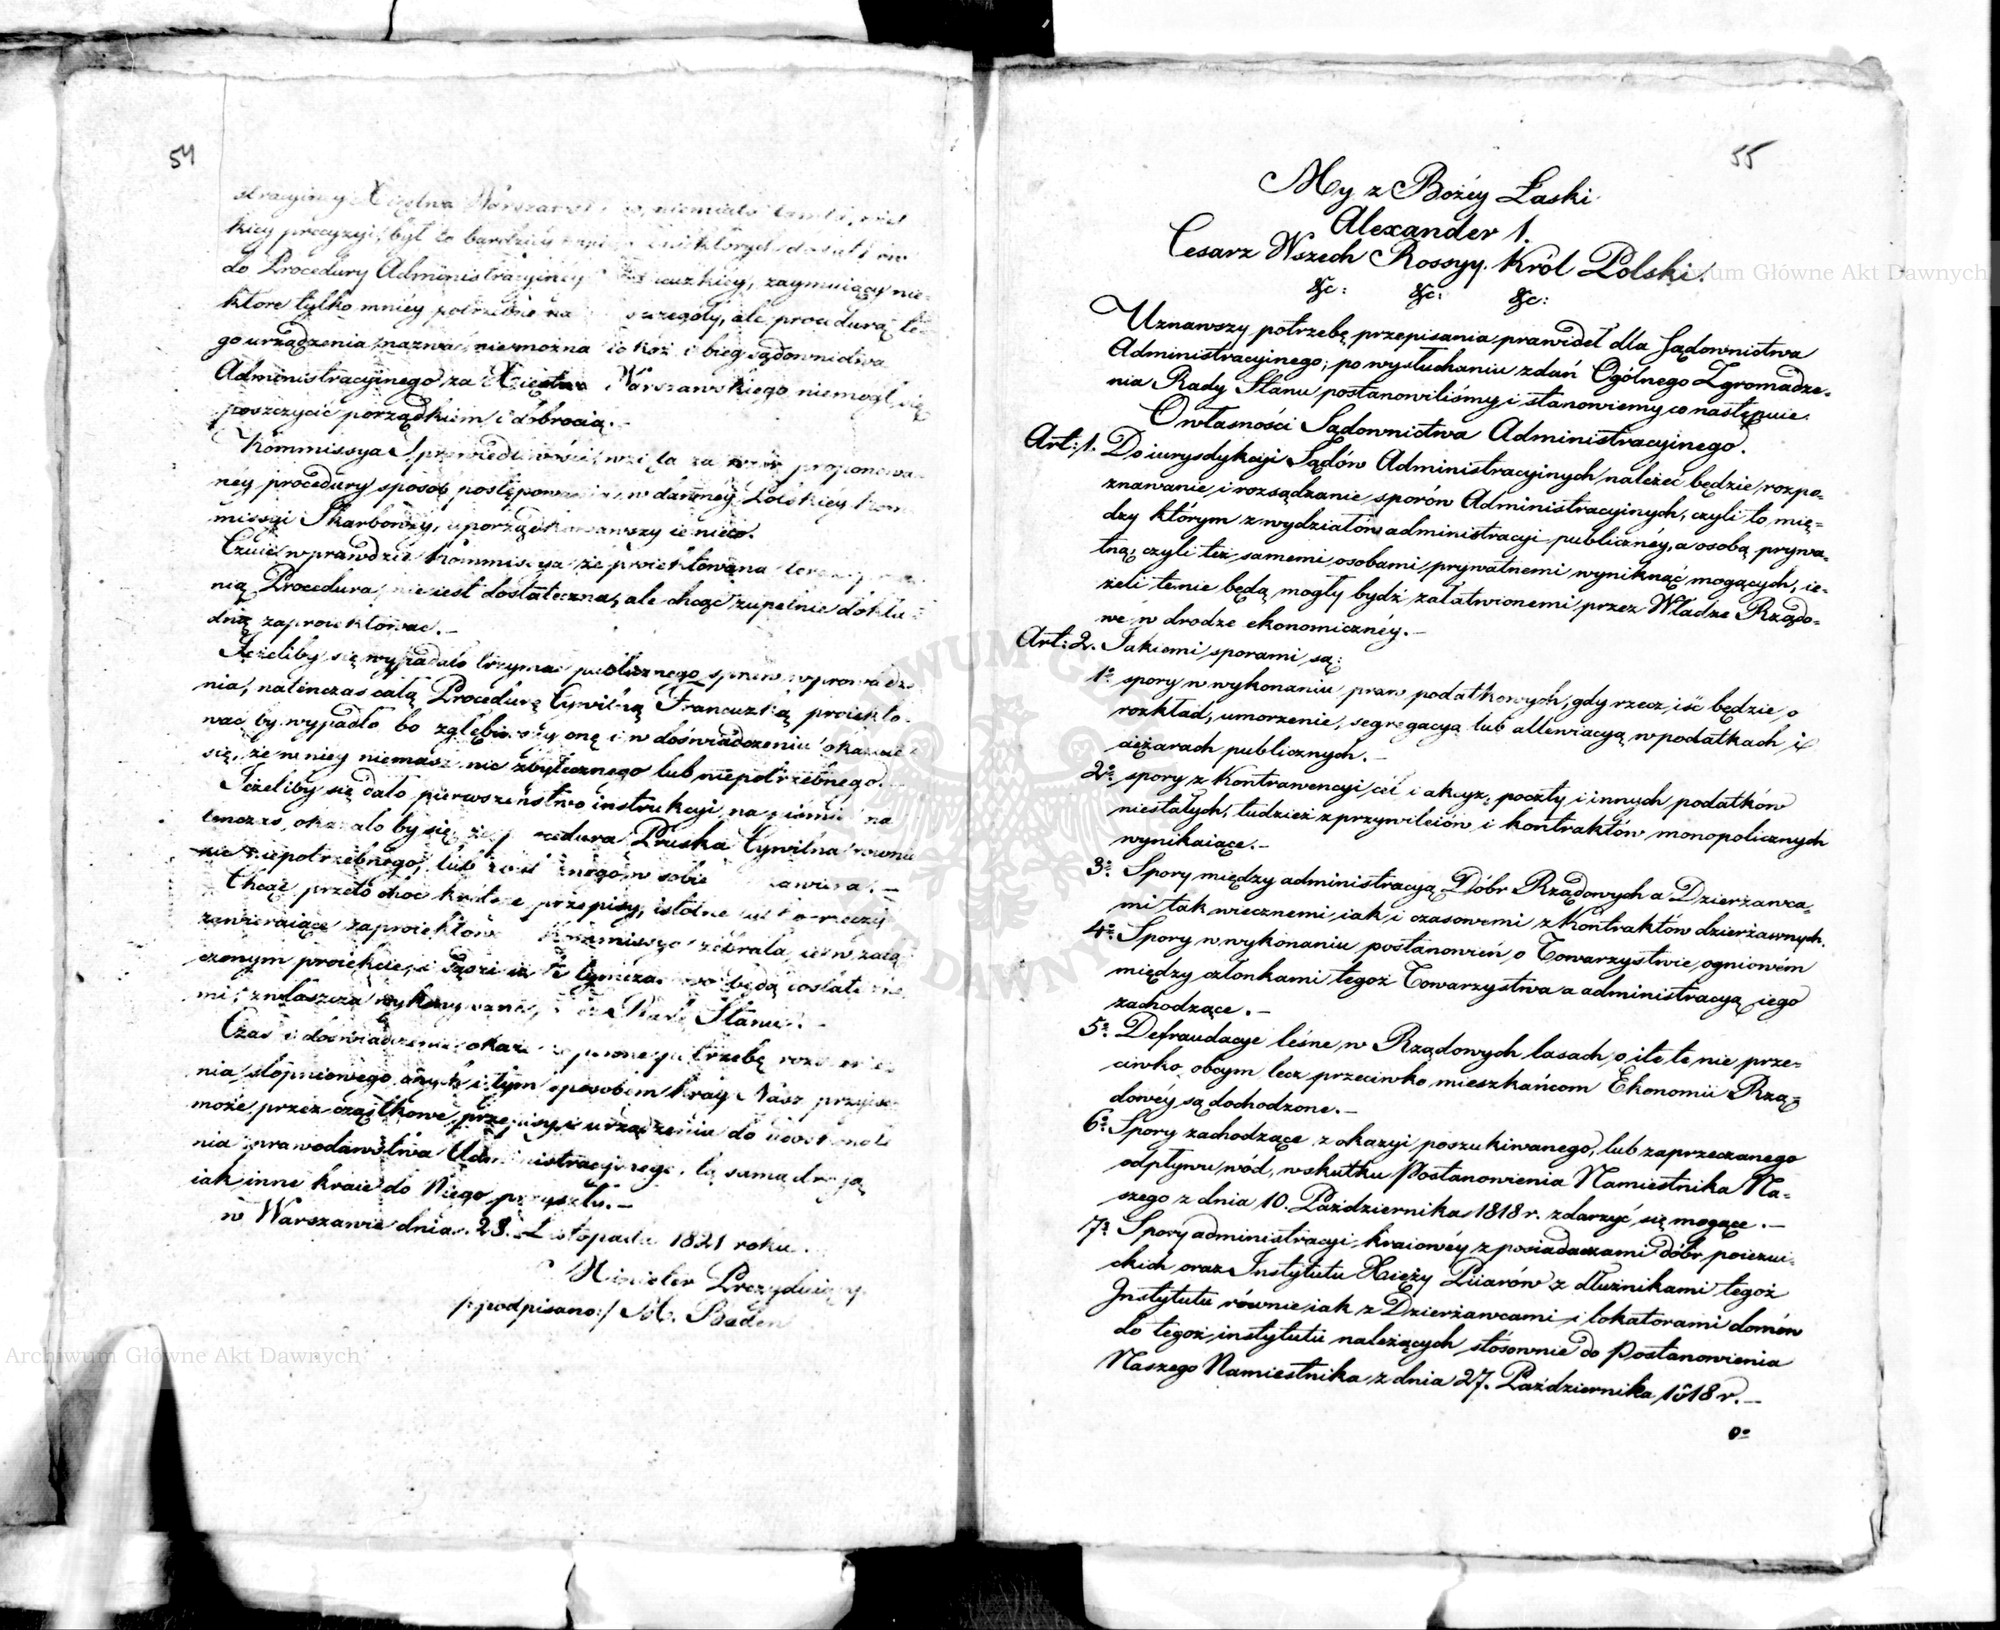 54
stracyiney Xięstwa Warszawskiego, niemiało
kiey precyzyi, był to bardziey
do Procedury Administracyiney Francuzkiey, zaymuiący nie-
które tylko mniey potrzebne szczegóły, ale procedurą te-
go urządzenia nazwać nie można iakoż i bieg sądownictwa
Administracyinego za Xięstwa Warszawskiego niemógł się
poszczycić porządkiem i dobrocią.-
Kommissya Sprawiedliwości wzięła za wzór proponowa-
ney procedury sposób postępowania w dawney Polskiey Kom-
missyi Skarbowey, uporządkowawszy ie nieco.
Czuie wprawdzie Kommissya że proiektowana
nią Procedura, nie iest dostateczna, ale chcąc zupełnie dokła-
dnię zaproiektować.-
Jeżeliby się wypadało trzymać publicznego spraw wprowadze-
nia, natenczas całą Procedurę Cywilną Francuzką proiekto-
wać by wypadło bo zgłębiwszy onę i w doświadczeniu okazuie
się, że w niey niemasz nic zbytecznego lub niepotrzebnego.-
Jeżeliby się dało pierwszeństwo instrukcyi na piśmie na
tenczas okazało by się, że procedura Pruska Cywilna równie
nic niepotrzebnego, lub w sobie zawiera.-
Chcąc przeto choć krótkie przepisy, istotne
zawieraiące zaproiektować Kommissya zebrała ie w załą-
czonym proiekcie, i sądzi iż te tymczasowo będą dostateczne-
mi, zwłaszcza Radę Stanu.-
Czas i doświadczenie okaże potrzebę
nia stopniowego onych i tym sposobem kray Nasz przyiść
może przez cząstkowe przepisy i urządzenia do
nia prawodawstwa Administracyinego, tą samą drogą
iak inne kraie do Niego przyszły.-
w Warszawie dnia 28. Listopada 1821 roku.
Minister Prezyduiący
/:podpisano:/ M. Badeni
55
My z Bożéy Łaski
Alexander 1.
Cesarz Wszech Rossyy. Król Polski.
&c: &c: &c:
Uznawszy potrzebę przepisania prawideł dla Sądownictwa
Administracyinego; po wysłuchaniu zdań Ogólnego Zgromadze-
nia Rady Stanu postanowiliśmy i stanowiemy co następuie.
O własności Sądownictwa Administracyinego.
Art: 1. Do iurysdykcyi Sądów Administracyinych należeć będzie rozpo-
znawanie i rozsądzanie sporów Administracyinych, czyli to mię-
dzy którym z wydziałów administracyi publicznéy, a osobą prywa-
tną, czyli też samemi osobami prywatnemi wyniknąć mogących, ie-
żeli te nie będą mogły bydź załatwionemi przez Władze Rządo-
we w drodze ekonomicznéy.-
Art: 2. Jakiemi sporami są:
1º spory w wykonaniu praw podatkowych, gdy rzecz iść będzie o
rozkład, umorzenie, segregacyą lub allewiacyą w podatkach i
ciężarach publicznych.-
2º spory z Kontrawencyi ceł i akcyz, poczty i innych podatków
niestałych, tudzież z przywileiów i kontraktów monopolicznych
wynikaiące.-
3º Spory między administracyą Dóbr Rządowych a Dzierżawca-
mi tak wiecznemi iak i czasowemi z Kontraktów dzierżawnych.
4º Spory w wykonaniu postanowień o Towarzystwie ogniowém
między członkami tegoż Towarzystwa a administracyą iego
zachodzące.-
5º Defraudacye leśne w Rządowych lasach, o ile te nie prze-
ciwko obcym lecz przeciwko mieszkańcom Ekonomii Rzą-
dowéy są dochodzone.-
6º Spory zachodzące z okazyi poszukiwanego, lub zaprzeczanego
odpływu wód, w skutku Postanowienia Namiestnika Na-
szego z dnia 10. Października 1818 r. zdarzyć się mogące.-
7º Spory administracyi kraiowéy z posiadaczami dóbr poiezui-
ckich oraz Instytutu Xięży Piiarów z dłużnikami tegoż
Instytutu równie iak z Dzierżawcami i lokatorami domów
do tegoż instytutu należących stosownie do Postanowienia
Naszego Namiestnika z dnia 27. Października 1818 r.-